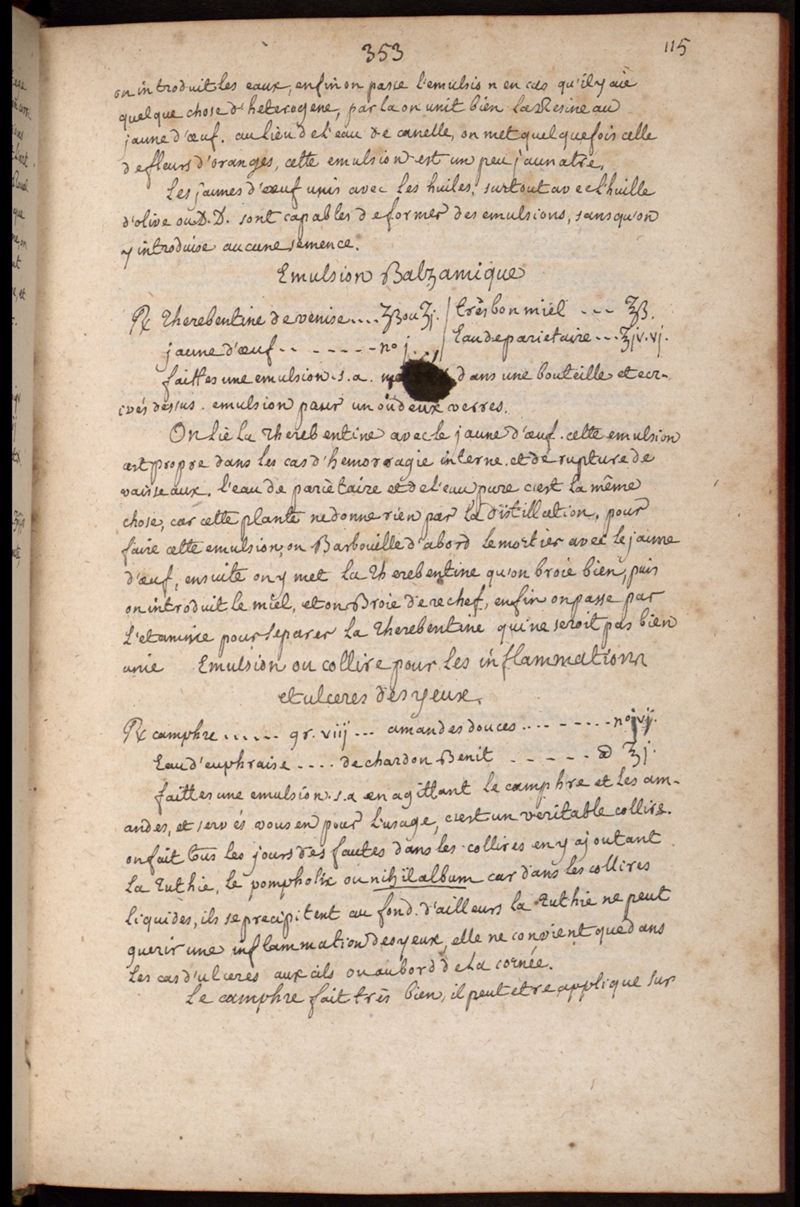 353
115
on introduit les eaux, enfin on passe l'emulsion en cas qu'il y aie
quelque chose d'heterogene, par la on unit bien la Resine au
jaune d'œuf. au lieu de l'eau de canelle, on met quelquefois celle
de fleurs d'oranges, cette emulsion est un peu jaunatre,
Les jaunes d'œuf unis avec les huiles, surtout avec l'huille
d'olive ou D.D. sont capables de former des emulsions, sans qu'on
y introduise aucune semence.
Emulsion Balzamique
℞ Therebentine de venise.... ʒß ou ʒj. / très bon miel --- ʒß.
jaune d'œuf -- - - - - - - n° j... / Eau de parietaire --- ʒjv. vj.
faittes une emulsion. s. a. dans une bouteille et ecr-
ivés dessus. emulsion pour un ou deux verres.
On lie la Therebentine avec le jaune d'œuf. cette emulsion
est propre dans les cas d'hemorragie interne. et de rupture de
vaisseaux. l'eau de parietaire et de l'eau pure c'est la même
chose, car cette plante ne donne rien par la distillation. pour
faire cette emulsion, on Barbouille d'abord le mortier avec le jaune
d'œuf, ensuite on y met la Therebentine qu'on broie bien, puis
on introduit le miel, et on Broie derechef, enfin on passe par
l'etamine pour separer la Therebentine qui ne seroit pas bien
unie Emulsion ou collire pour les inflammations
et ulceres des yeux.
℞ camphre...... gr. viij... amandes douces.... - - - - - n°
Eau d'euphraise.... de chardon Benit - - - - - ʒj.
faittes une emulsion. s. a en agittant le camphre et les am-
andes, et servés vous en pour l'usage, c'est un veritable collire.
on fait tous les jours des fautes dans les collires en y ajoutant
la Tuthie, le pompholix ou nihil album car dans les collires
liquides, ils se precipitent au fond. d'ailleurs la Tuthie ne peut
guerir une inflammation des yeux, elle ne convient que dans
les cas d'ulceres aux cils ou au bord de la cornée.
Le camphre fait très bien, il peut etre applique sur